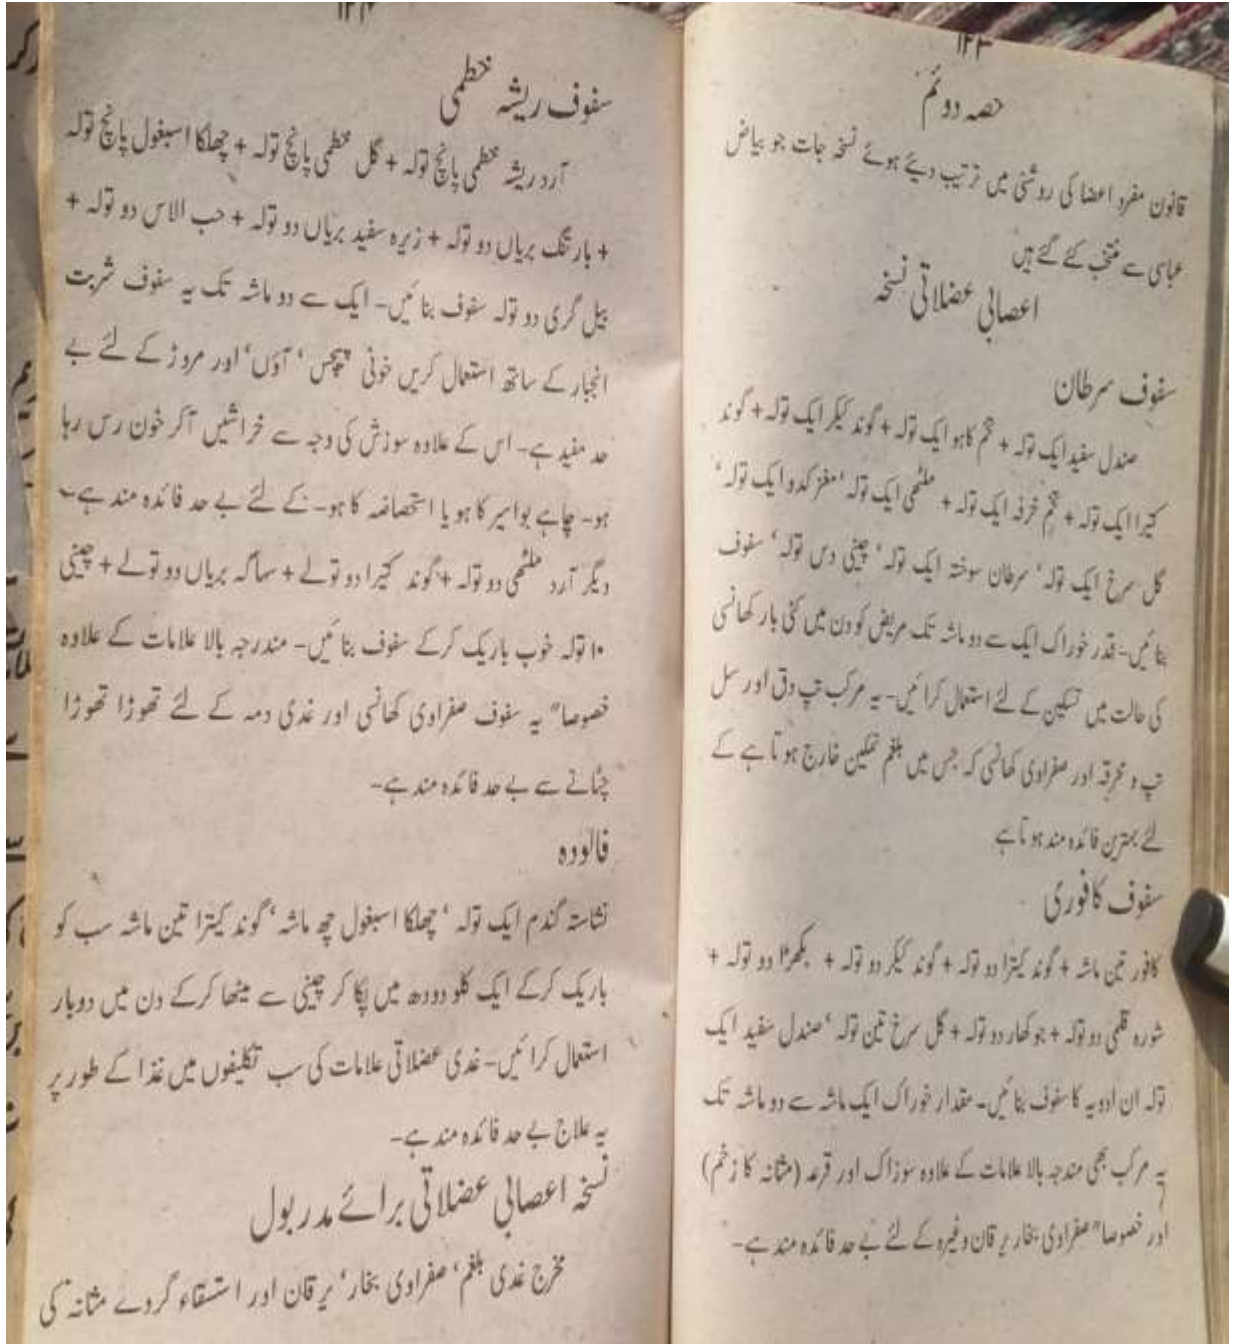 ۱۲۳
حصہ دوئم
قانون مفرد اعضا کی روشنی میں ترتیب دیئے ہوئے نسخہ جات جو بیاض
عباسی سے منتخب کئے گئے ہیں
اعصابی عضلاتی نسخہ
سفوف سرطان
صندل سفید ایک تولہ + تخم کاہو ایک تولہ + گوند کیکر ایک تولہ + گوند
کتیرا ایک تولہ + تخم خرفہ ایک تولہ + ملٹھی ایک تولہ ‘ مغز کدو ایک تولہ ‘
گل سرخ ایک تولہ ‘ سرطان سوختہ ایک تولہ ‘ چینی دس تولہ ‘ سفوف
بنائیں۔ قدر خوراک ایک سے دو ماشہ تک مریض کو دن میں کئی بار کھانسی
کی حالت میں تسکین کے لئے استعمال کرائیں۔ یہ مرکب تپ دق اور سل
تپ و محرقہ اور صفراوی کھانسی کہ جس میں بلغم نمکین خارج ہوتا ہے کے
لئے بہترین فائدہ مند ہوتا ہے
سفوف کافوری
کافور تین ماشہ + گوند کیترا دو تولہ + گوند کیکر دو تولہ + بکھڑا دو تولہ +
شورہ قلمی دو تولہ + جوکھار دو تولہ + گل سرخ تین تولہ ‘ صندل سفید ایک
تولہ ان ادویہ کا سفوف بنائیں۔ مقدار خوراک ایک ماشہ سے دو ماشہ تک
یہ مرکب بھی مندجہ بالا علامات کے علاوہ سوزاک اور قرعہ (مثانہ کا زخم)
اور خصوصا" صفراوی بخار یرقان وغیرہ کے لئے بے حد فائدہ مند ہے۔
۱۲۴
سفوف ریشہ خطمی
آرد ریشہ خطمی پانچ تولہ + گل خطمی پانچ تولہ + چھلکا اسبغول پانچ تولہ
+ بارتنگ بریاں دو تولہ + زیرہ سفید بریاں دو تولہ + حب الاس دو تولہ +
بیل گری دو تولہ سفوف بنائیں۔ ایک سے دو ماشہ تک یہ سفوف شربت
انجبار کے ساتھ استعمال کریں خونی پیچس ‘ آؤں ‘ اور مروڑ کے لئے بے
حد مفید ہے۔ اس کے علاوہ سوزش کی وجہ سے خراشیں آکر خون رس رہا
ہو۔ چاہے بواسیر کا ہو یا استحاضہ کا ہو۔ کے لئے بے حد فائدہ مند ہے۔
دیگر آرد ملٹھی دو تولہ + گوند کتیرا دو تولے + سہاگہ بریاں دو تولے + چینی
۱۰ تولہ خوب باریک کرکے سفوف بنائیں۔ مندرجہ بالا علامات کے علاوہ
خصوصا" یہ سفوف صفراوی کھانسی اور غدی دمہ کے لئے تھوڑا تھوڑا
چٹانے سے بے حد فائدہ مند ہے۔
فالودہ
نشاستہ گندم ایک تولہ ‘ چھلکا اسبغول چھ ماشہ ‘ گوند کیترا تین ماشہ سب کو
باریک کرکے ایک کلو دودھ میں پکا کر چینی سے میٹھا کرکے دن میں دوبار
استعمال کرائیں۔ غدی عضلاتی علامات کی سب تکلیفوں میں غذا کے طور پر
یہ علاج بے حد فائدہ مند ہے۔
نسخہ اعصابی عضلاتی برائے مدر بول
مخرج غدی بلغم ‘ صفراوی بخار ‘ یرقان اور استسقاء گردے مثانہ کی